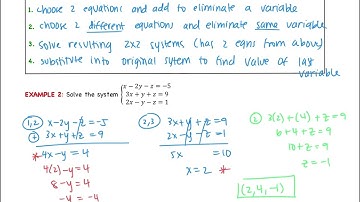 1. choose 2 equations and add to eliminate a variable
2. choose 2 different equations and eliminate same variable
3. solve resulting 2x2 systems (has 2 eqns from above)
4. substitute into original sytem to find value of last
variable
EXAMPLE 2: Solve the system { x − 2y − z = −5
3x + y + z = 9
2x − y − z = 1
(1,2) x-2y-z=-5
+ 3x+y+z=9
* 4x-y=4
4(2)-y=4
8-y=4
-y=-4
(2,3) 3x+y+z=9
2x-y-z=1
5x =10
x=2 *
② 3(2)+(4)+z=9
6+4+z=9
10+z=9
z=-1
(2,4,-1)